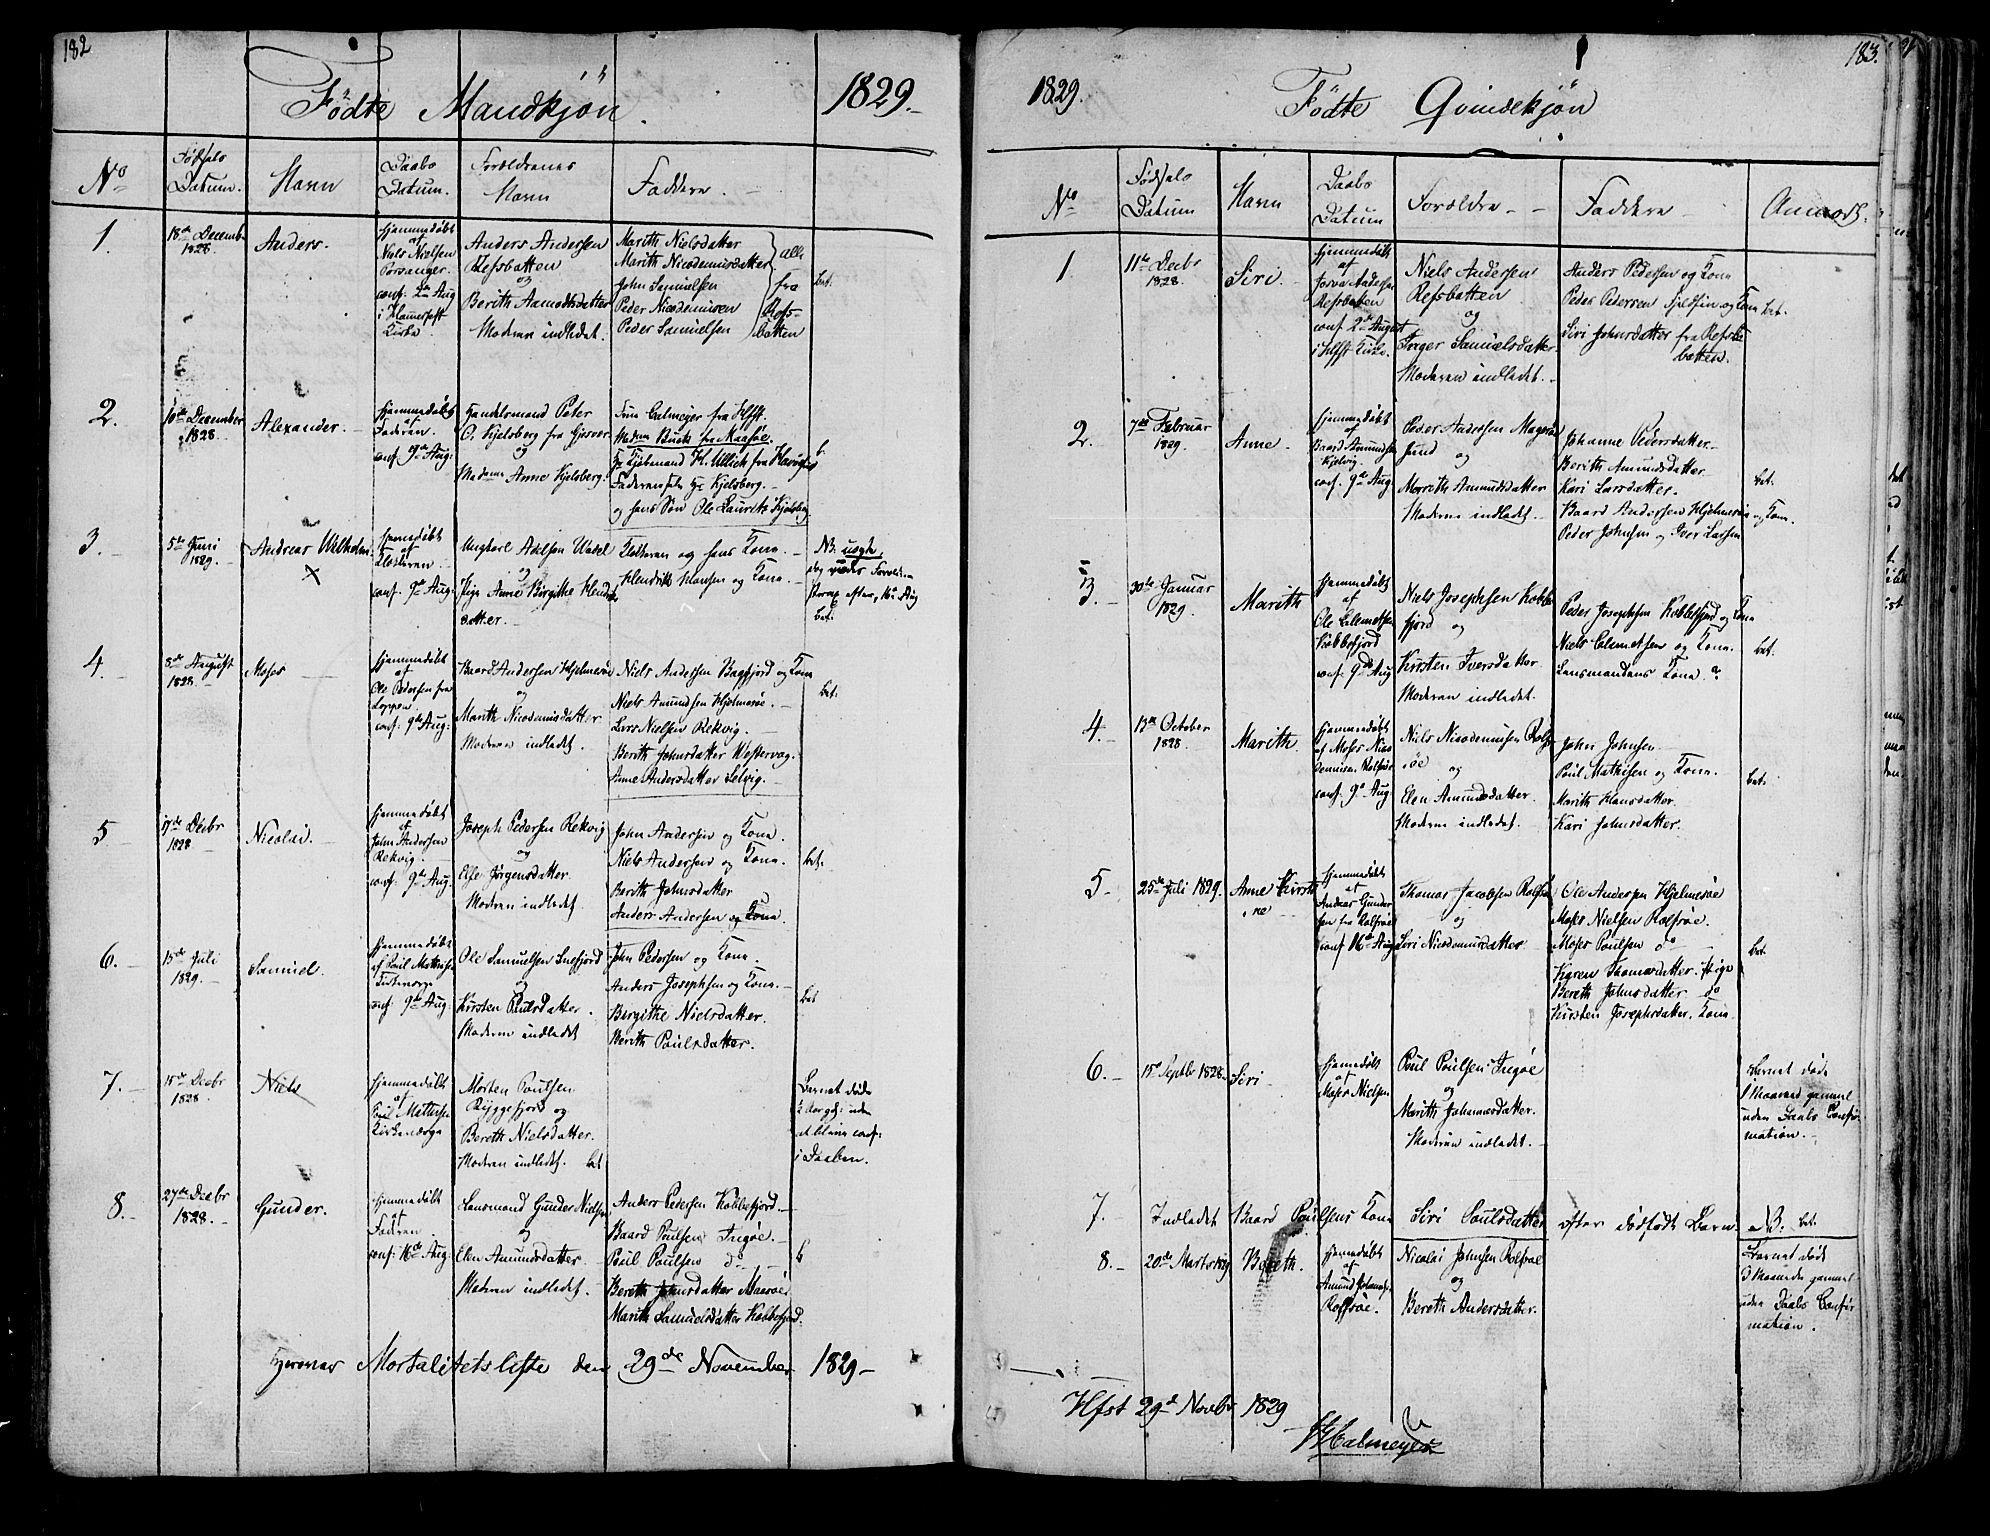 182
Födte Mandkjön. 1829.-
No
Födsels Datum.
Navn
Daabs Datum.
Forældrenes Navn
Faddere. -
1
18de Decembr 1828.
Anders.
Hjemmedöbt af Niels Nielsen Porsanger. conf. 2den Aug i Hamerfest Kirke
Anders Andersen Refsbatten og Berith Aamodtsdatter Moderen indledet.
Marith Nielsdatter
Marith Nicodemusdatter
John Samuelsen
Peder Nicodemusen
Peder Samuelsen
alle fra Refsbatten
bet.
2.
10de December 1828.
Alexander.
Hjemmedöbt af Faderen. conf. 9de Aug:
Handelsmand Peter O. Kjelsberg fra Gjesvær og Madame Anne Kjelsberg.
Frue Calmeyer fra Hfst.
Madam Buck fra Maasöe.
Hr Kjöbmand H. Ullich fra Havigsund
Faderen selv Hr Kjelsberg. -
og hans Sön Ole Laurits Kjelsberg
b.
3.
5te Juni 1829.
Andreas Wilhelm. X
Hjemmedöbt af Klokkeren. conf. 9de Aug:
Ungkarl Adelsen Wadel og Pige Anne Birgithe Hendriksdatter. -
Klokkeren og hans Kone. -
Hendrik Hansen og Kone. -
NB. uægte, dog Forældre strax efter, 16de Aug bet:
4.
8de August 1828
Moses
Hjemmedöbt af Ole Pedersen fra Loppen. conf. 9de Aug:
Baard Andersen Hjelmesöe og Marith Nicodemusdatter. Moderen indledet. -
Niels Andersen Bagfjord og Kone
Niels Amundsen Hjelmesöe. -
Lars Nielsen Rekvig. -
Berith Johnsdatter Westervag.
Anne Andersdatter Selvig. -
bet.
5
17de Decbr 1828
Nicolai.
Hjemmedöbt af John Andersen Rekvig. conf. 9de Aug:
Joseph Pedersen Rekvig og Else Jörgensdatter. Moderen indledet
John Andersen og Kone.
Niels Andersen og Kone.
Berith Johnsdatter
Anders Andersen og Kone.
bet.
6.
15de Juli 1829. -
Samuel.
Hjemmedöbt af Paul Mathisen conf 9de Aug
Ole Samuelsen Snefjord og Kirsten Paulsdatter. Moderen indledet
John Pedersen og Kone.
Anders Josephsen og Kone. -
Birgithe Nielsdatter.
Berith Paulsdatter.
bet
7. -
15de Decbr 1828
Niels
Hjemmedöbt af Poul Mathisen
Morten Poulsen Ryggefjord og Bereth Nielsdatter. Moderen indledet. bet
Barnet döde uden at blive conf: i Daaben.
8. -
27de Decbr 1828. -
Gunder.
Hjemmedöbt af Faderen conf 16de Aug:
Lensmand Gunder Nielsen og Elen Amundsdatter Moderen indledet. -
Anders Pedersen Kobbefjord. -
Baard Poulsen Ingöe. -
Poul Poulsen do -
Bereth Johnsdatter Maasöe
Marith Samuelsdatter Kobbefjord.
b
Mortalitetsliste den 29de November 1829-
183.
1829. Födte Qvindekjön
No
Födsels Datum
Navn
Daabs Datum
Forældre - -
Faddere -
Anmærk.
1
11te Decbr 1828.
Siri. -
Hjemmedöbt af Refsbatten conf. 2de August i Hfst Kirke.
Niels Andersen Refsbatten og Inger Samuelsdatter. Moderen indledet. -
Anders Pedersen og Kone
Peder Pedersen og Kone
Siri Johnsdatter fra Refsbatten.
bet.
2.
7de Februar 1829.
Anne -
Hjemmedöbt af Baard Amundsen Kjelvig. conf. 9de Aug
Peder Andersen Magerösund og Marrith Amundsdatter Moderen indledet -
Johanne Pedersdatter. -
Berith Amundsdatter
Kari Larsdatter. -
Baard Andersen Hjelmesöe og Kone.
Peder Johnsen og Iver Larsen
bet.
3. -
30te Januar 1829.
Marith
Hjemmedöbt af Ole Clemetsen Kobbefjord conf. 9de Aug
Niels Josephsen Kobbefjord og Kirsten Iversdatter. Moderen indledet.
Peder Josephsen Kobbefjord og Kone
Niels Clemetsen og Kone.
Lensmandens Kone.
bet.
4. -
13de October 1828.
Marith.
Hjemmedöbt af Moses Nicodemusen Rolfsöe conf. 9de Aug
Niels Nicodemusen Rolfsöe og Elen Amundsdatter. Moderen indledet.
John Johnsen -
Poul Mathisen og Kone.
Marith Hansdatter.
Kari Johnsdatter.
bet.
5. -
25de Juli 1829.
Anne Kirstine -
Hjemmedöbt af Andreas Gundersen fra Rolfsöe conf 16de Aug
Thomas Jacobsen Rolfsöe og Siri Nicodemusdatter
Ole Andersen Hjelmesöe
Moses Nielsen Rolfsöe.
Moses Poulsen do -
Karen Thomasdatter. Pige
Bereth Johnsdatter do
Kirsten Josephsdatter. Kone.
bet.
6. -
15de Septbr 1828.
Siri -
Hjemmedöbt af Moses Nielsen
Poul Poulsen Ingöe og Marith Johannesdatter. Moderen indledet. -
Barnet döde 1 Maaned gammel uden Daabs Confirmation. -
7.
Indledet Baard Poulsens Kone Siri Poulsdatter efter dödfödt Barn. NB. bet.
8. -
20de Marts
Bereth.
Hjemmedöbt af Amund Rolfsöe.
Nicolai Johnsen Rolfsöe og Bereth Andersdatter.
Barnet död 3 Maaneder gammel uden Daabs Confirmation.
Hfst 29de Novbr 1829
Calmeyer